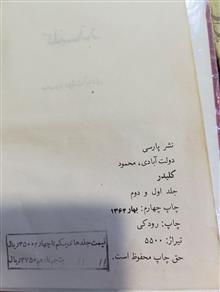 نشر پارسی
دولت آبادی، محمود
کلیدر
جلد اول و دوم
چاپ چهارم: بهار ۱۳۶۴
چاپ: رودکی
تیراژ: ۵۵۰۰
حق چاپ محفوظ است.
قیمت جلدهای یکم تا چهارم ۳۵۰۰ ریال